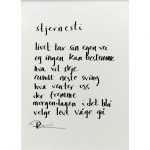 stjernesti
livet har sin egen vei
og ingen kan bestemme
hva vil skje
rundt neste sving
hva venter oss
der fremme
morgendagen i det blå
velge love